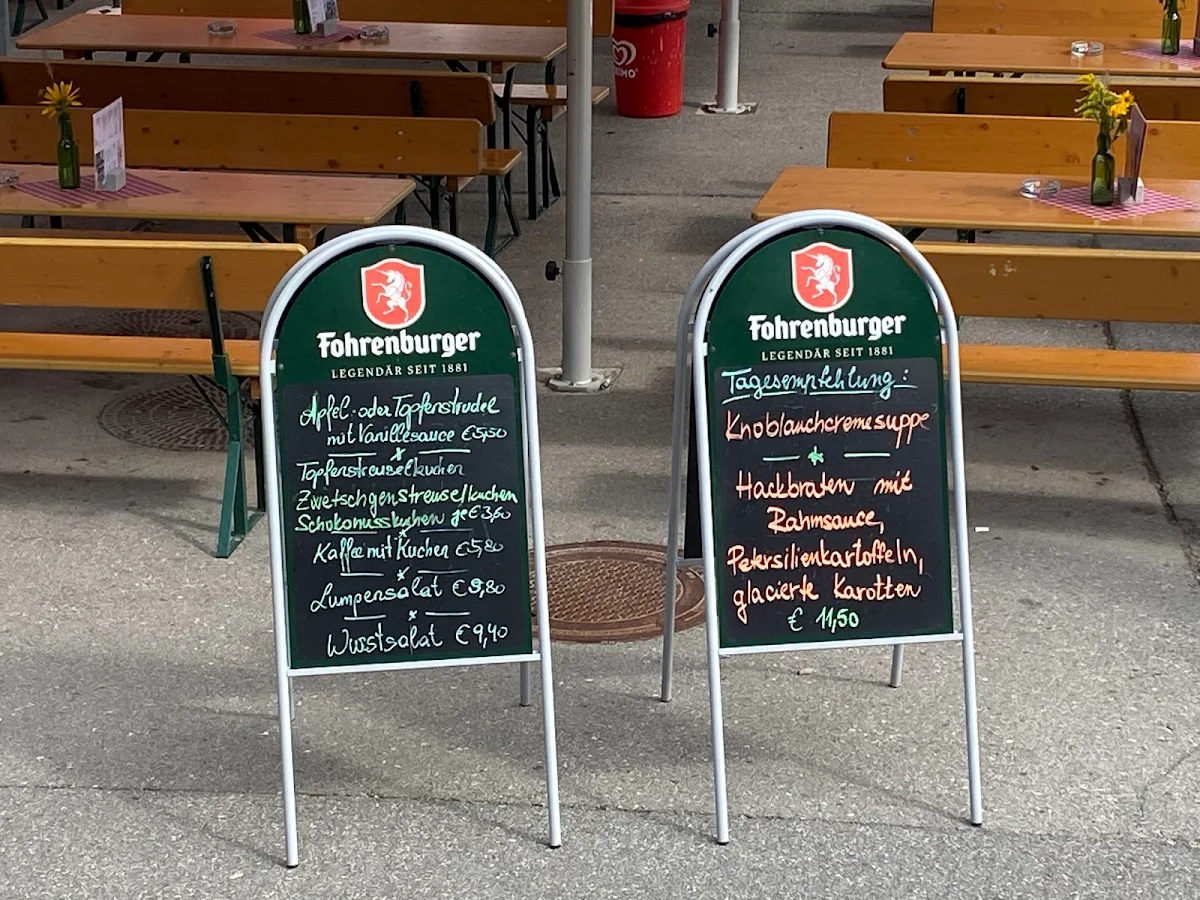 Fohrenburger
LEGENDÄR SEIT 1881
Apfel- oder Topfenstrudel
mit Vanillesauce €5,50
Topfenstreuselkuchen
Zwetschgenstreuselkuchen
Schokonusskuchen je € 3,60
Kaffee mit Kuchen €5,80
Lumpensalat €9,80
Wurstsalat €9,40
Fohrenburger
LEGENDÄR SEIT 1881
Tagesempfehlung:
Knoblauchcremesuppe
Hackbraten mit
Rahmsauce,
Petersilienkartoffeln,
glacierte Karotten
€ 11,50